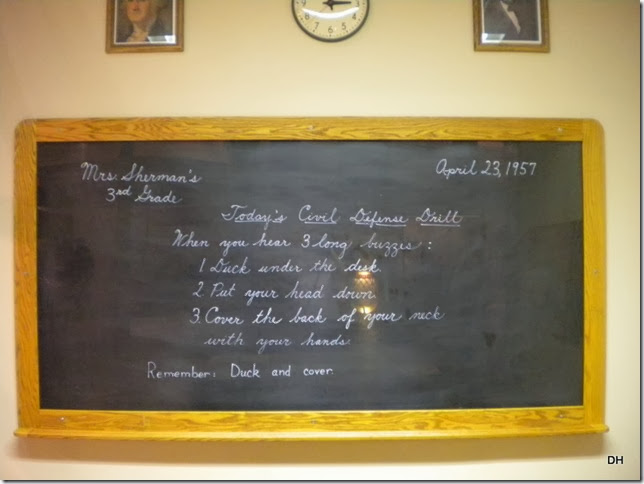 Mrs. Sherman's
3rd Grade
April 23, 1957
Today's Civil Defense Drill
When you hear 3 long buzzes:
1 Duck under the desk.
2 Put your head down.
3. Cover the back of your neck
with your hands.
Remember: Duck and cover.
DH